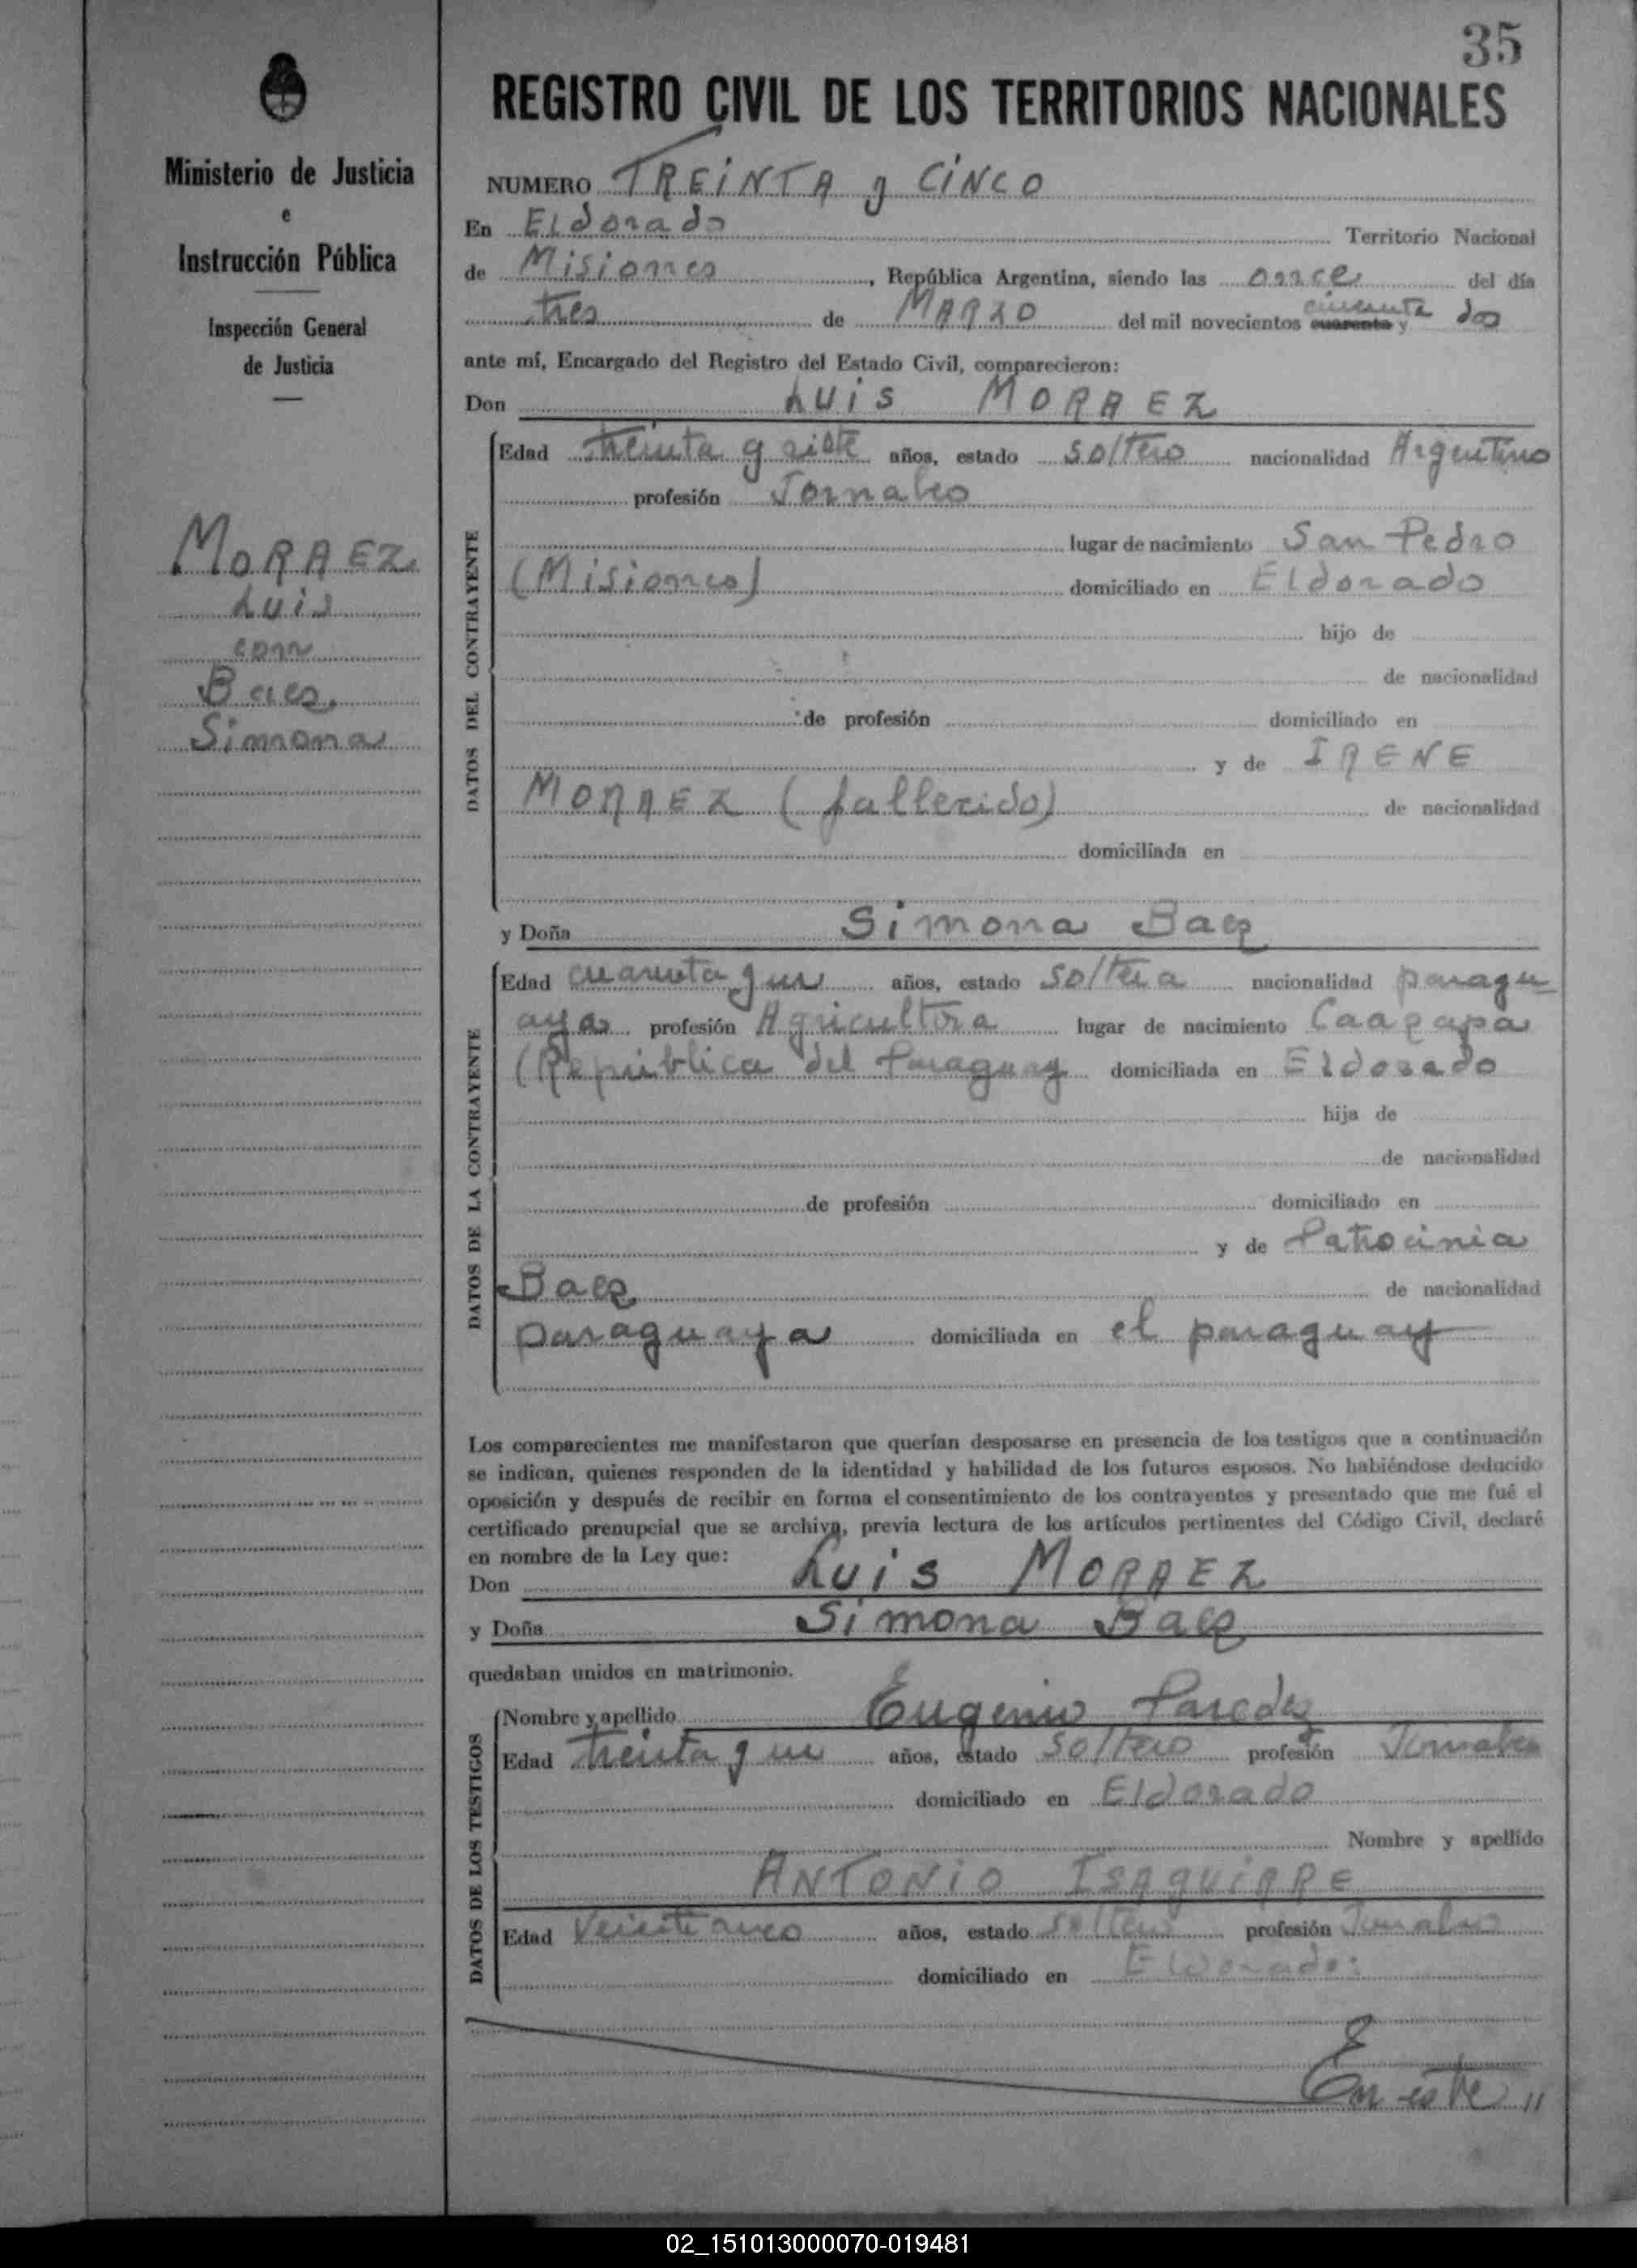 35
REGISTRO CIVIL DE LOS TERRITORIOS NACIONALES
Ministerio de Justicia
e
Instrucción Pública
Inspección General
de Justicia
MORAEZ
Luis
con
Baez
Simona
NUMERO TREINTA y CINCO
En Eldorado Territorio Nacional
de Misiones, República Argentina, siendo las once del día
tres de MARZO del mil novecientos cuarenta y cincuenta dos
ante mí, Encargado del Registro del Estado Civil, comparecieron:
Don Luis MORAEZ
DATOS DEL CONTRAYENTE
Edad treinta y siete años, estado soltero nacionalidad Argentino
profesión Jornalero
lugar de nacimiento San Pedro
(Misiones) domiciliado en Eldorado
hijo de
de nacionalidad
de profesión domiciliado en
y de IRENE
MORAEZ (fallecido) de nacionalidad
domiciliada en
y Doña Simona Baez
DATOS DE LA CONTRAYENTE
Edad cuarenta y un años, estado soltera nacionalidad paragu
aya profesión Agricultora lugar de nacimiento Caazapa
(Republica del Paraguay domiciliada en Eldorado
hija de
de nacionalidad
de profesión domiciliado en
y de Patrocinia
Baez de nacionalidad
paraguaya domiciliada en el paraguay
Los comparecientes me manifestaron que querían desposarse en presencia de los testigos que a continuación
se indican, quienes responden de la identidad y habilidad de los futuros esposos. No habiéndose deducido
oposición y después de recibir en forma el consentimiento de los contrayentes y presentado que me fué el
certificado prenupcial que se archiva, previa lectura de los artículos pertinentes del Código Civil, declaré
en nombre de la Ley que:
Don Luis MORAEZ
y Doña Simona Baez
quedaban unidos en matrimonio.
DATOS DE LOS TESTIGOS
Nombre y apellido Eugenio Paredez
Edad treinta y un años, estado soltero profesión Jornalero
domiciliado en Eldorado
Nombre y apellido
ANTONIO ISAGUIRRE
Edad años, estado soltero profesión Jornalero
domiciliado en Eldorado
En este //
02_151013000070-019481